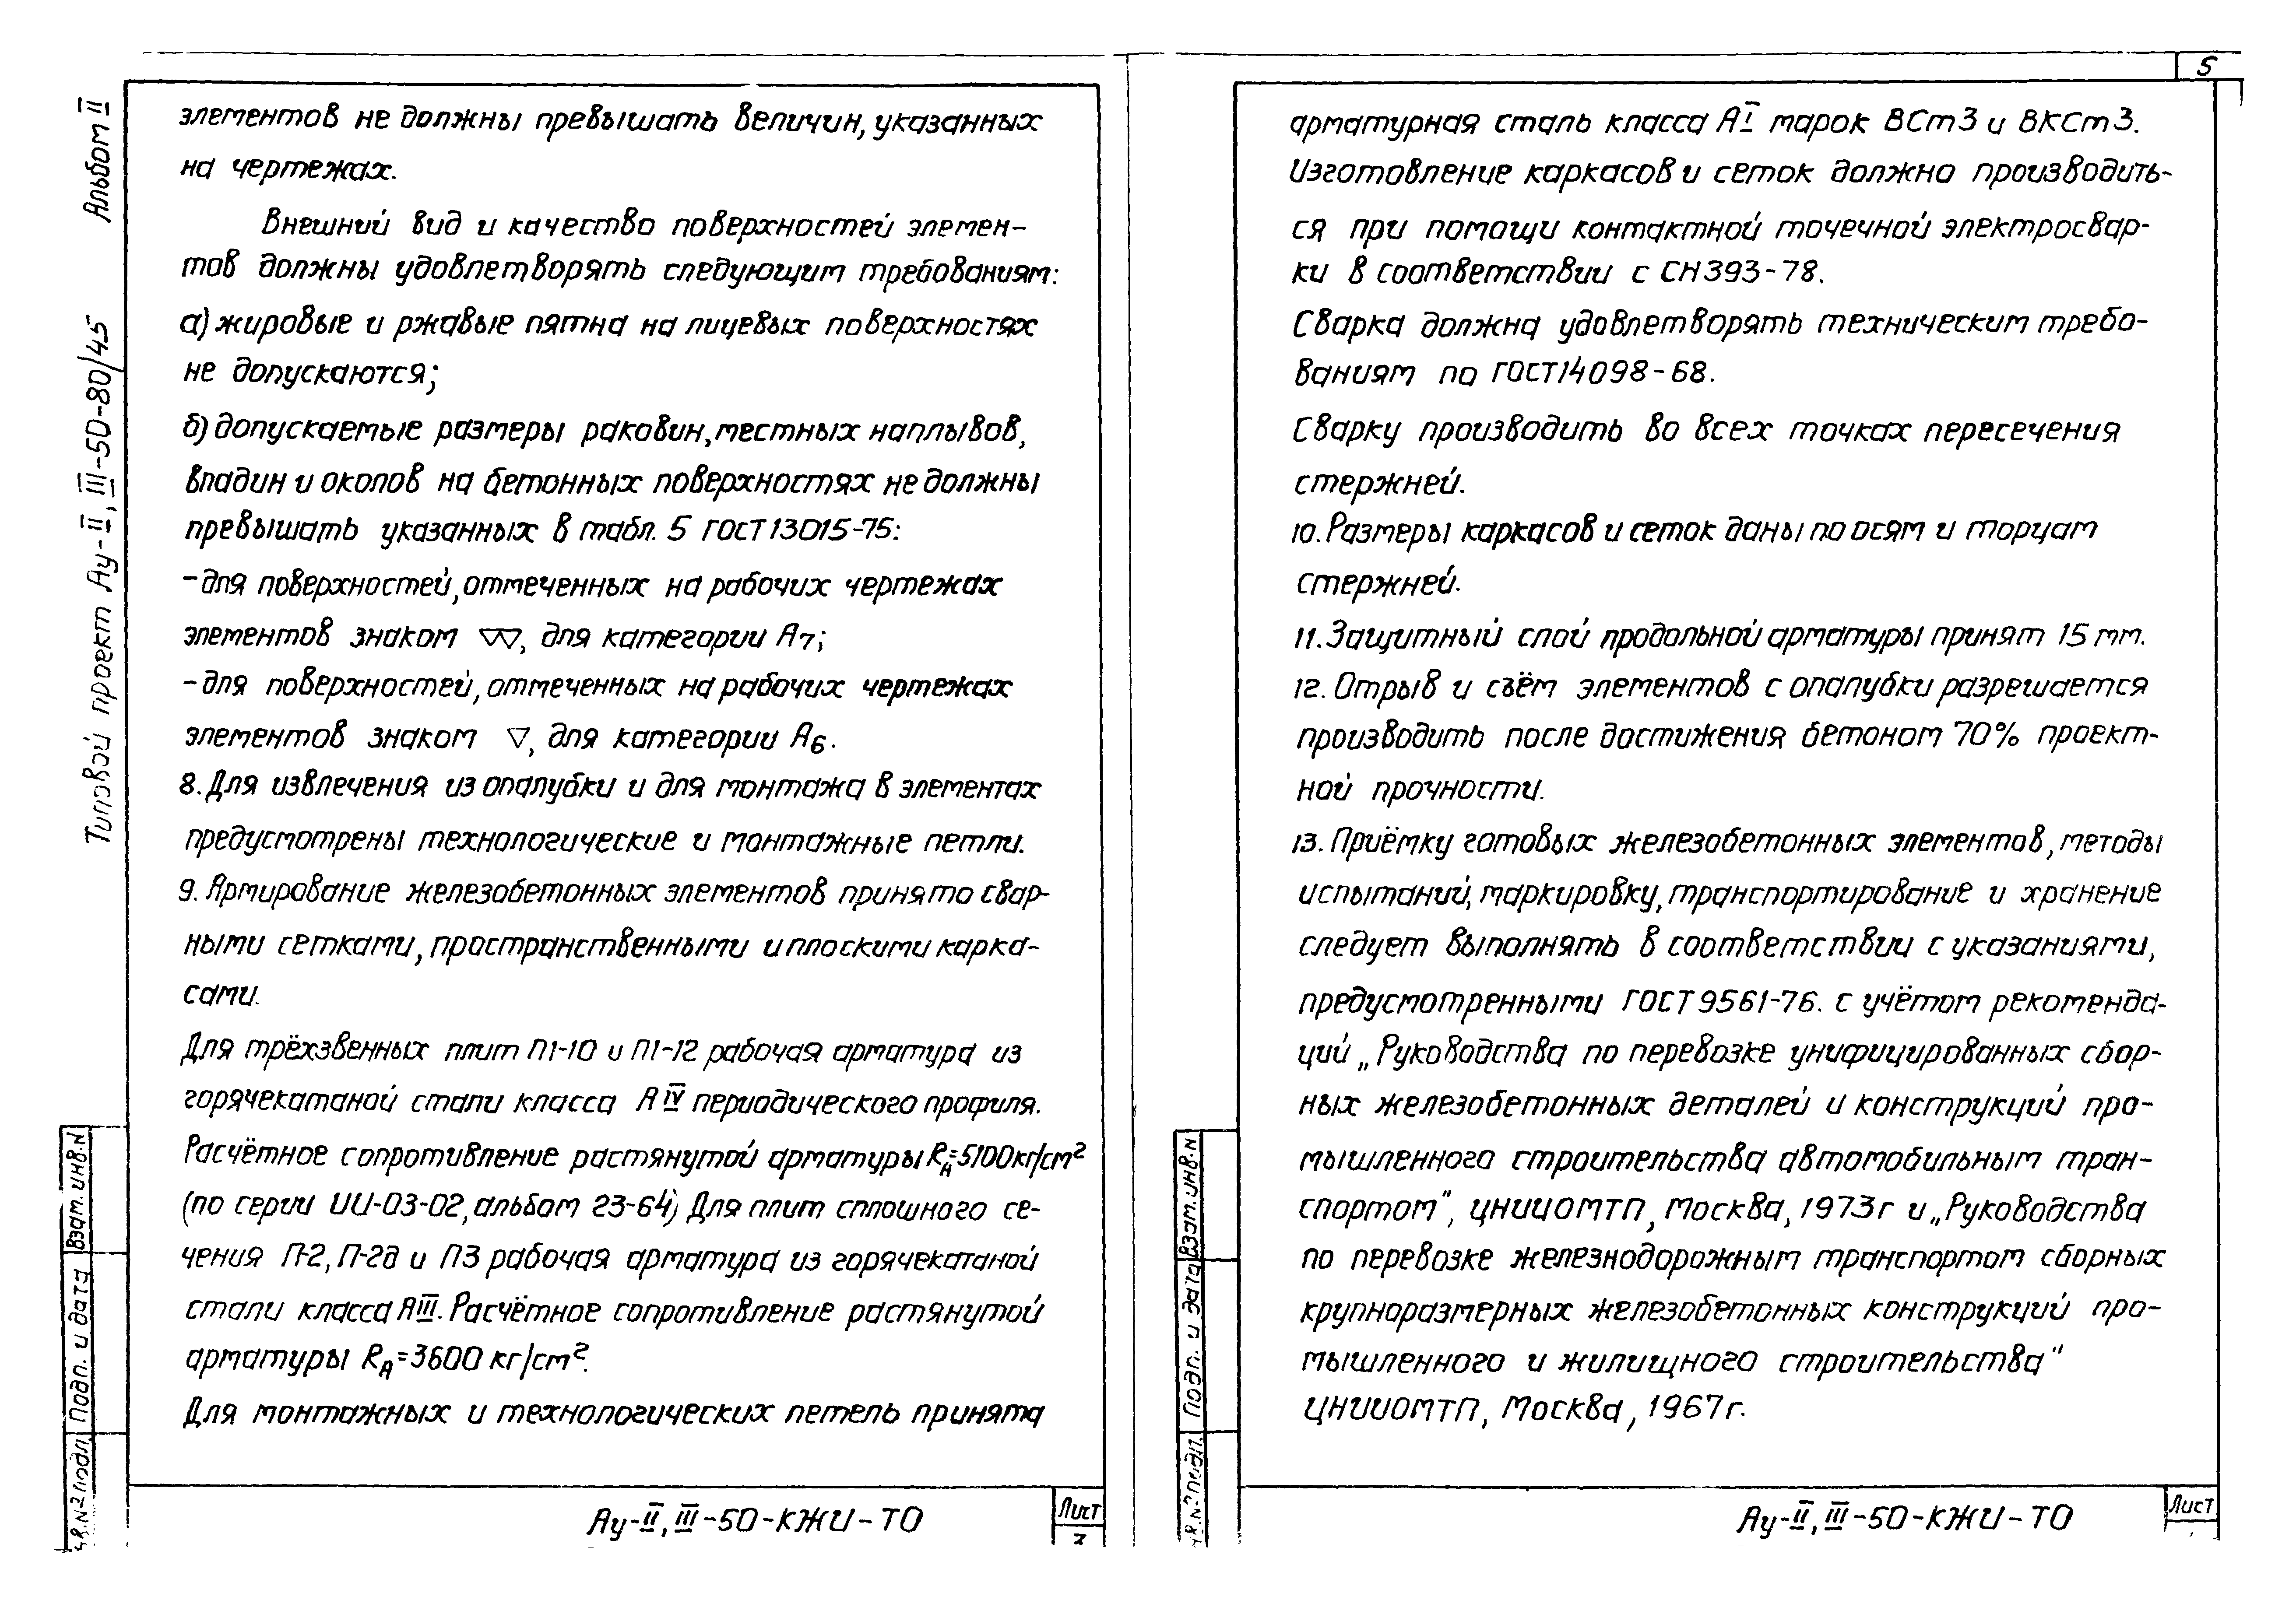 5
Альбом II
Типовой проект Ау-II, III-50-80/45
элементов не должны превышать величин, указанных
на чертежах.
Внешний вид и качество поверхностей элемен-
тов должны удовлетворять следующим требованиям:
а) жировые и ржавые пятна на лицевых поверхностях
не допускаются;
б) допускаемые размеры раковин, местных наплывов,
впадин и околов на бетонных поверхностях не должны
превышать указанных в табл. 5 ГОСТ 13015-75:
- для поверхностей, отмеченных на рабочих чертежах
элементов знаком ▽▽, для категории А7;
- для поверхностей, отмеченных на рабочих чертежах
элементов знаком ▽, для категории А6.
8. Для извлечения из опалубки и для монтажа в элементах
предусмотрены технологические и монтажные петли.
9. Армирование железобетонных элементов принято свар-
ными сетками, пространственными и плоскими карка-
сами.
Для трёхзвенных плит П1-10 и П1-12 рабочая арматура из
горячекатаной стали класса А IV периодического профиля.
Расчётное сопротивление растянутой арматуры RА=5100кг/см²
(по серии ИИ-03-02, альбом 23-64) Для плит сплошного се-
чения П-2, П-2д и П3 рабочая арматура из горячекатаной
стали класса А III. Расчётное сопротивление растянутой
арматуры RА=3600 кг/см².
Для монтажных и технологических петель принята
Взам. инв. N
Подп. и дата
Ау-II, III-50-КЖИ-ТО
Лист
арматурная сталь класса А I марок ВСт3 и ВКСт3.
Изготовление каркасов и сеток должно производить-
ся при помощи контактной точечной электросвар-
ки в соответствии с СН393-78.
Сварка должна удовлетворять техническим требо-
ваниям по ГОСТ14098-68.
Сварку производить во всех точках пересечения
стержней.
10. Размеры каркасов и сеток даны по осям и торцам
стержней.
11. Защитный слой продольной арматуры принят 15 мм.
12. Отрыв и съём элементов с опалубки разрешается
производить после достижения бетоном 70% проект-
ной прочности.
13. Приёмку готовых железобетонных элементов, методы
испытаний, маркировку, транспортирование и хранение
следует выполнять в соответствии с указаниями,
предусмотренными ГОСТ 9561-76. с учётом рекоменда-
ций „Руководства по перевозке унифицированных сбор-
ных железобетонных деталей и конструкций про-
мышленного строительства автомобильным тран-
спортом", ЦНИИОМТП, Москва, 1973г и „Руководства
по перевозке железнодорожным транспортом сборных
крупноразмерных железобетонных конструкций про-
мышленного и жилищного строительства"
ЦНИИОМТП, Москва, 1967г.
Взам. инв. N
Подп. и дата
Ау-II, III-50-КЖИ-ТО
Лист